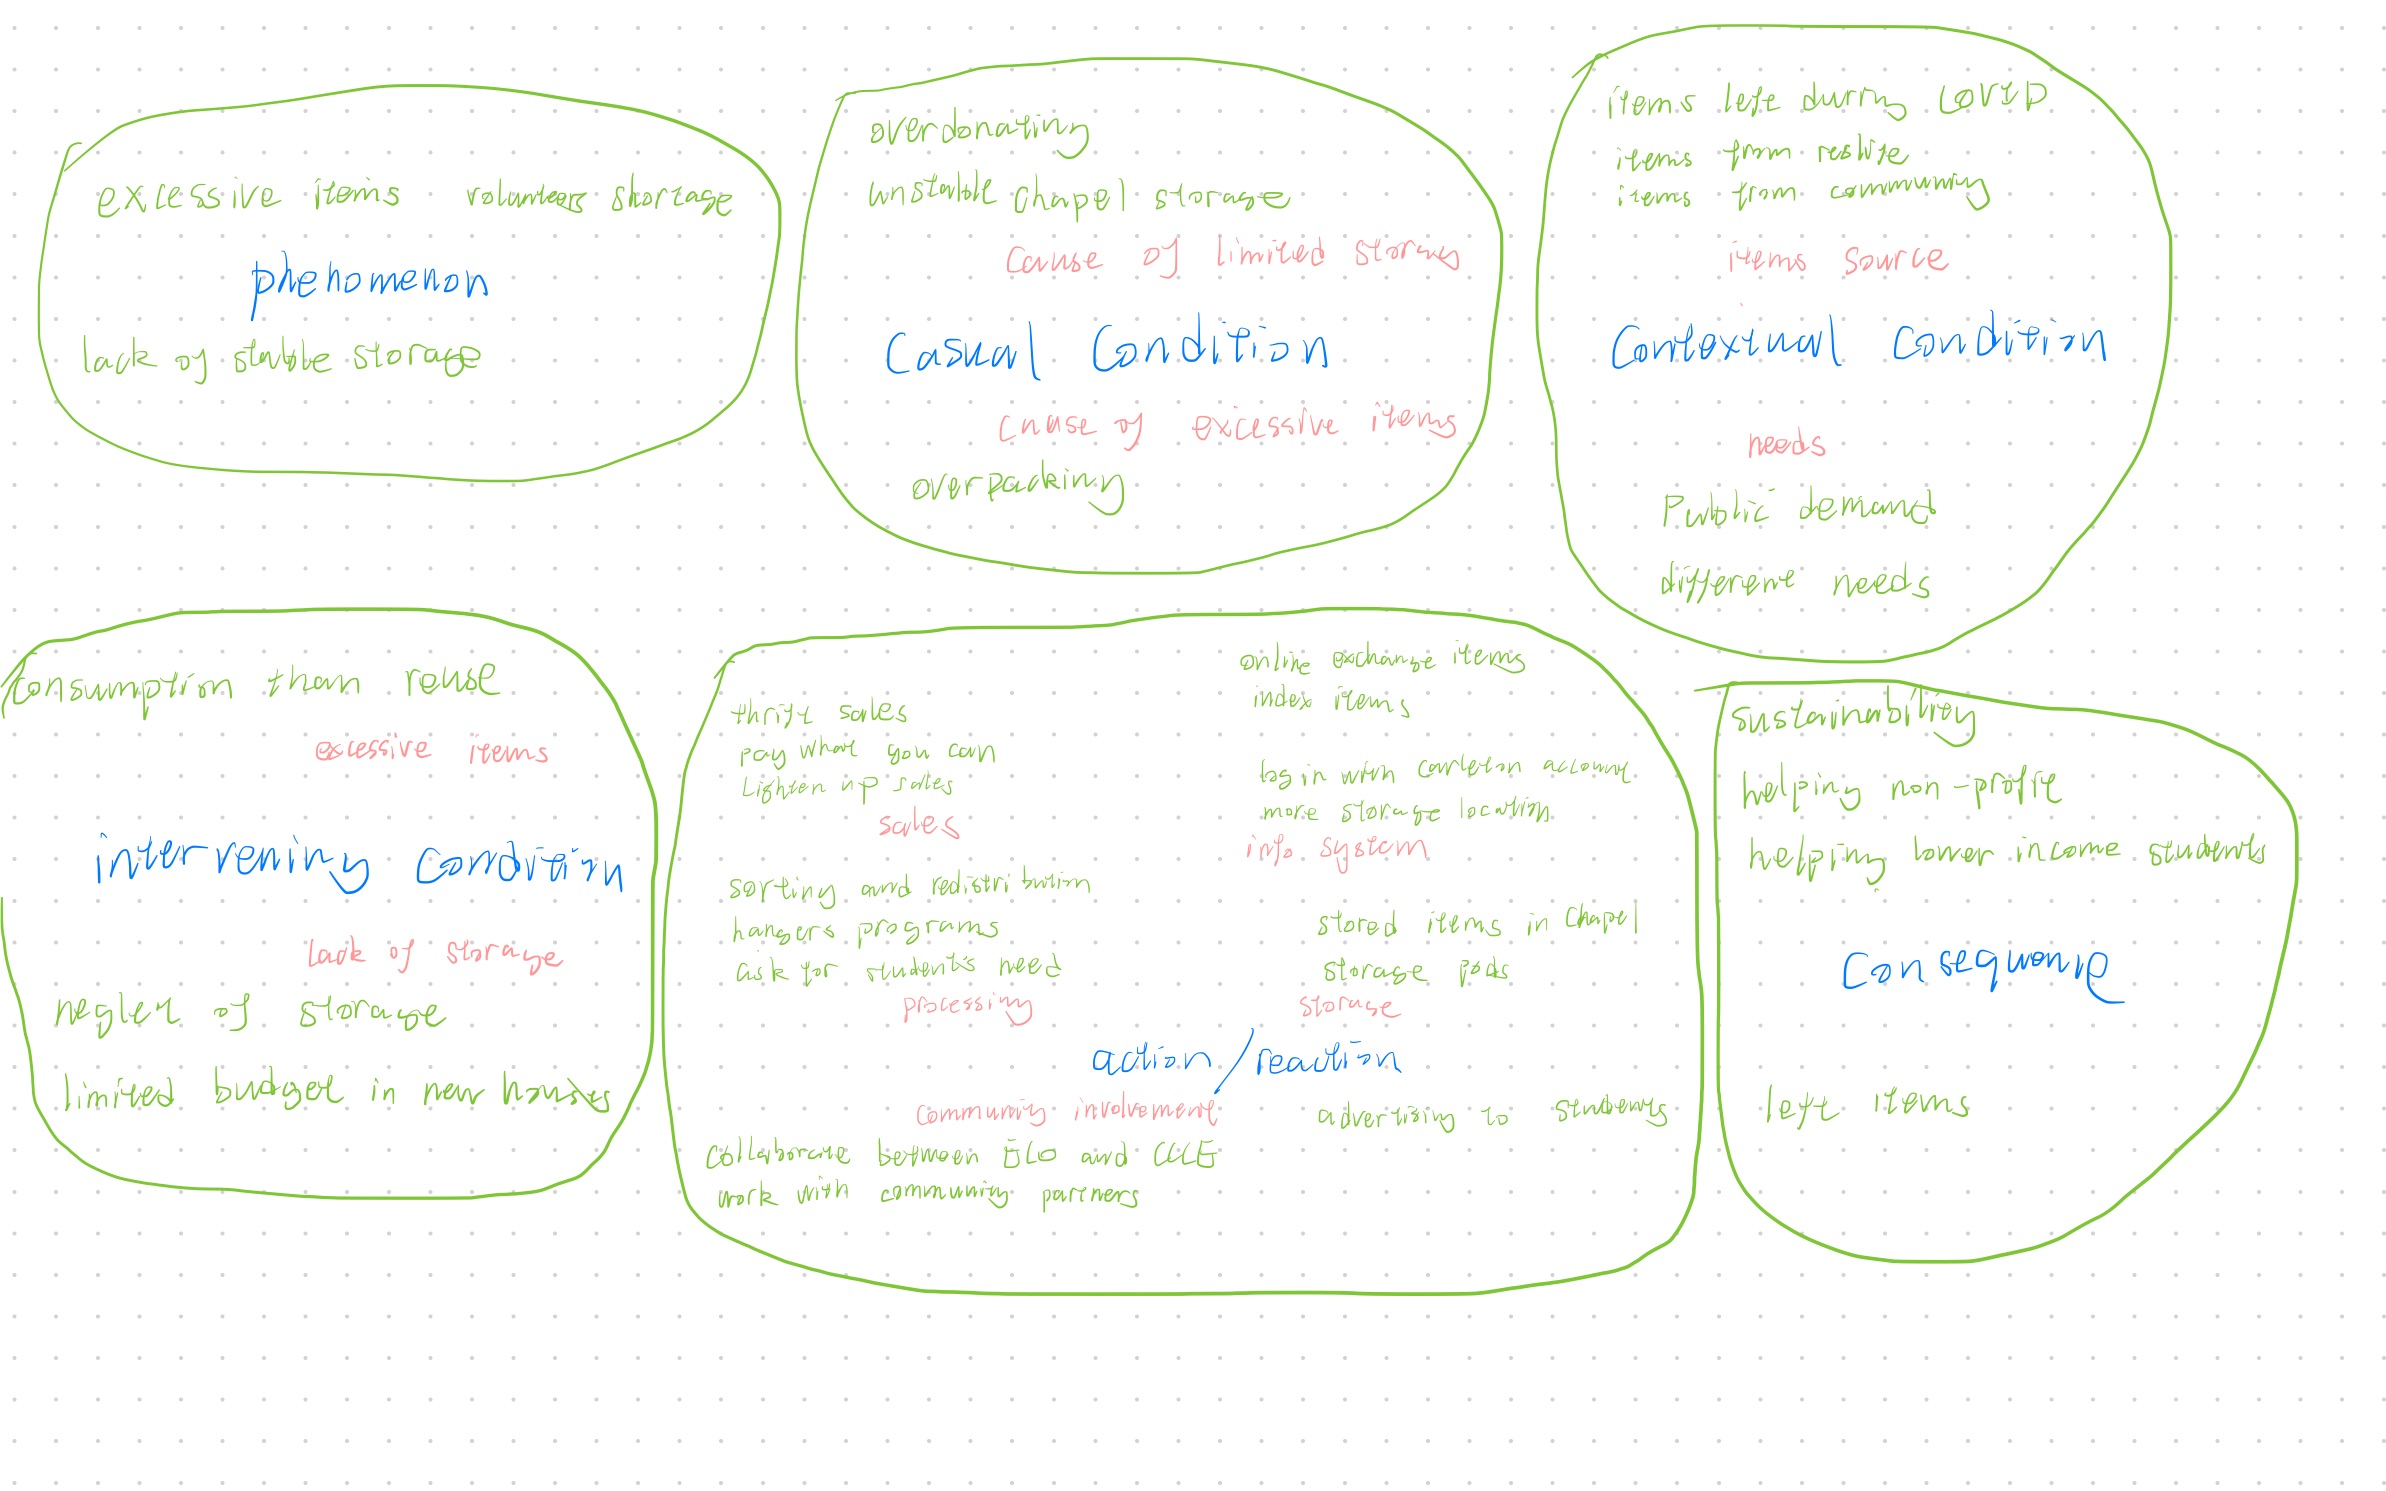 excessive items volunteers shortage
phenomenon
lack of stable storage
overdonating
unstable chapel storage
cause of limited storage
Casual Condition
cause of excessive items
overpacking
items left during COVID
items from reslife
items from community
items source
Contextual Condition
needs
Public demand
different needs
Consumption than reuse
excessive items
intervening condition
lack of storage
neglect of storage
limited budget in new houses
thrift sales
pay what you can
Lighten up sales
sales
sorting and redistribution
hangers programs
ask for student's need
processing
online exchange items
index items
log in with carleton account
more storage location
info system
stored items in Chapel
storage pods
storage
action/reaction
community involvement
advertising to students
Collaborate between ELO and CCCE
work with community partners
sustainability
helping non-profit
helping lower income students
Consequence
left items